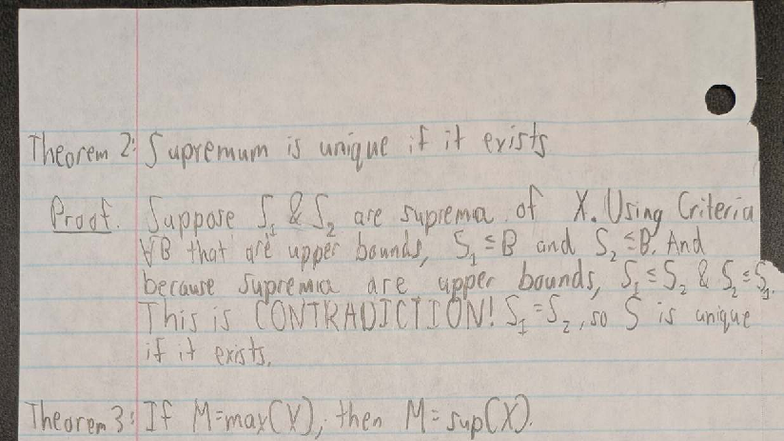 Theorem 2: Supremum is unique if it exists
Proof. Suppose S₁ & S₂ are suprema of X. Using Criteria
∀B that are upper bounds, S₁ ≤ B and S₂ ≤ B. And
because suprema are upper bounds, S₁ ≤ S₂ & S₂ ≤ S₁.
This is CONTRADICTION! S₁ = S₂, so S is unique
if it exists.
Theorem 3: If M=max(X), then M=sup(X).